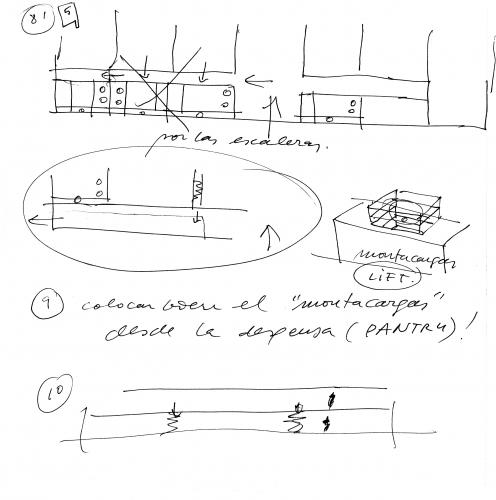 8'
5
por las escaleras.
montacargas
LIFT.
9
colocar bien el "montacargas"
desde la despensa (PANTRY)!
10